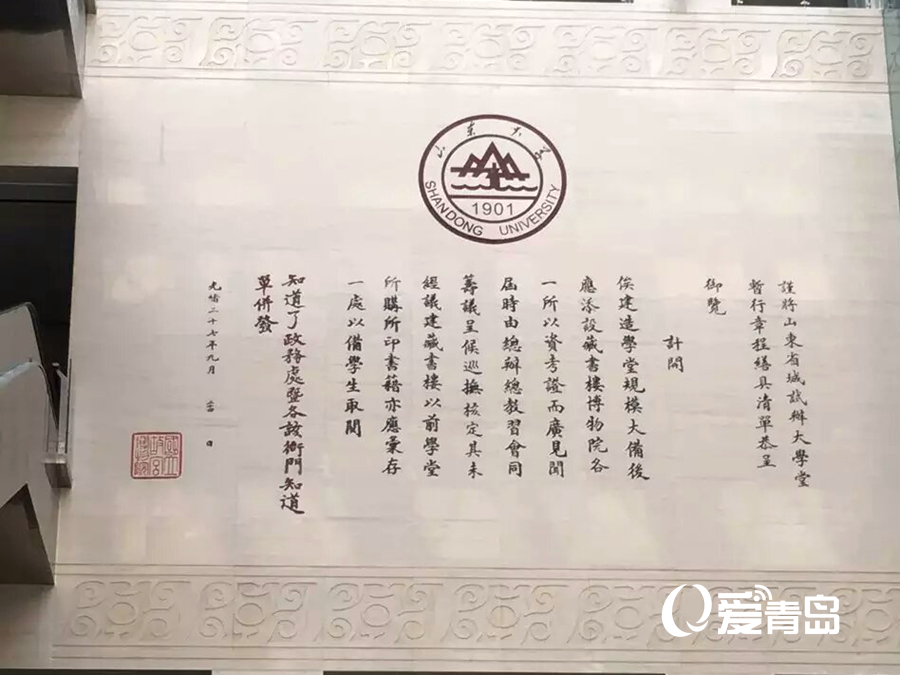 山东大学
SHANDONG UNIVERSITY
1901
謹將山東省城試辦大學堂
暫行章程繕具清單恭呈
御覽
計開
俟建造學堂規模大備後
應添設藏書樓博物院各
一所以資考證而廣見聞
屆時由總辦總教習會同
籌議呈候巡撫核定其未
經議建藏書樓以前學堂
所購所印書籍亦應彙存
一處以備學生取閱
知道了政務處暨各該衙門知道
單併發
光緒二十七年九月 日
爱青岛